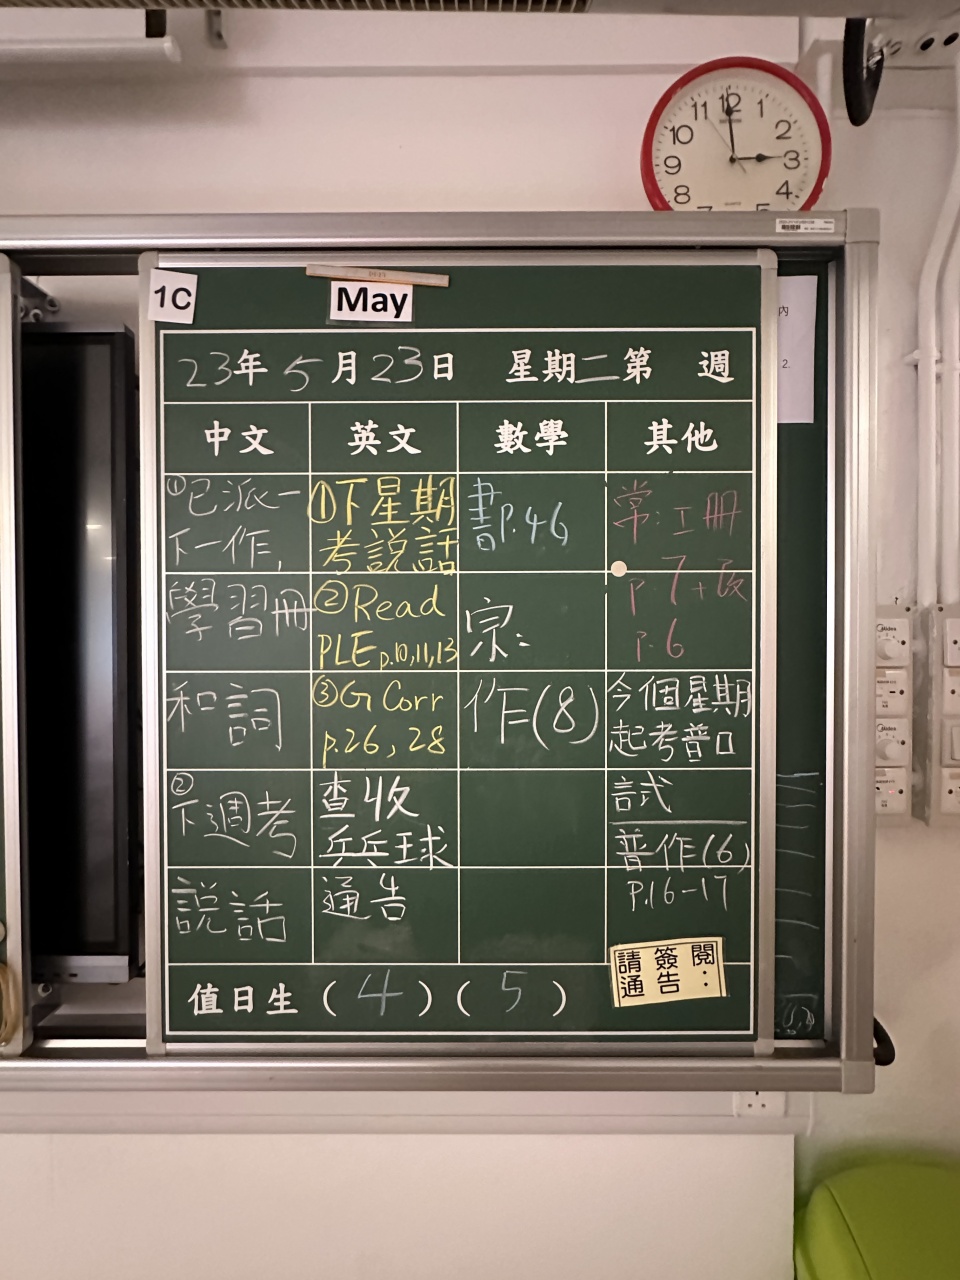 11 12 1
10 2
9 3
8 4
1C
May
23年 5月23日 星期二第 週
中文 英文 數學 其他
①已派一
下一作,
學習冊
和詞
②
下週考
説話
①下星期
考說話
②Read
PLE p.10,11,13
③G Corr
p.26, 28
查收
乒乓球
通告
書P.46
宗:
作(8)
常:工冊
P.7+改
P.6
今個星期
起考普口
試
普作(6)
P.16-17
請簽閱:
通告
值日生 ( 4 ) ( 5 )
內
2.
Midea